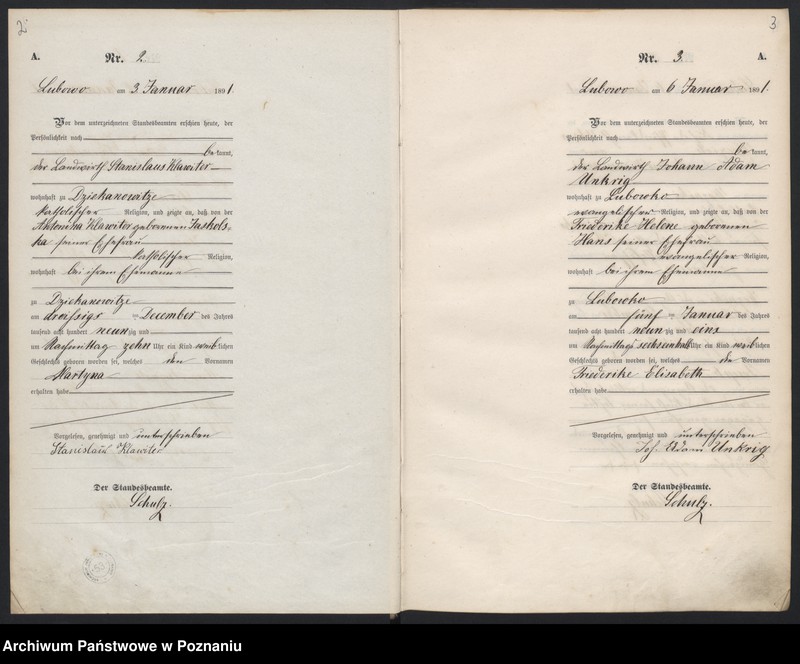 2
A.
Nr. 2
Lubowo am 3 Januar 1891.
Vor dem unterzeichneten Standesbeamten erschien heute, der
Persönlichkeit nach
be kannt,
der Landwirth Stanislaus Klawiter
wohnhaft zu Dziekanowitze
katholischer Religion, und zeigte an, daß von der
Antonina Klawiter geborenen Jaskols-
ka seiner Ehefrau
katholischer Religion,
wohnhaft bei ihrem Ehemanne
zu Dziekanowitze
am dreissigsten December des Jahres
tausend acht hundert neunzig und
um Nachmittag zehn Uhr ein Kind weiblichen
Geschlechts geboren worden sei, welches den Vornamen
Martyna
erhalten habe.
Vorgelesen, genehmigt und unterschrieben
Stanisław Klawiter
Der Standesbeamte.
Schulz.
3
Nr. 3.
A.
Lubowo am 6 Januar 1891.
Vor dem unterzeichneten Standesbeamten erschien heute, der
Persönlichkeit nach
be kannt,
der Landwirth Johann Adam
Unkrig
wohnhaft zu Lubowko
evangelischer Religion, und zeigte an, daß von der
Friderike Helene geborenen
Hans seiner Ehefrau
evangelischer Religion,
wohnhaft bei ihrem Ehemanne
zu Lubowko
am fünften Januar des Jahres
tausend acht hundert neunzig und eins
um Nachmittags sechseinhalb Uhr ein Kind weiblichen
Geschlechts geboren worden sei, welches die Vornamen
Friederike Elisabeth
erhalten habe.
Vorgelesen, genehmigt und unterschrieben
Joh. Adam Unkrig
Der Standesbeamte.
Schulz.
Archiwum Państwowe w Poznaniu